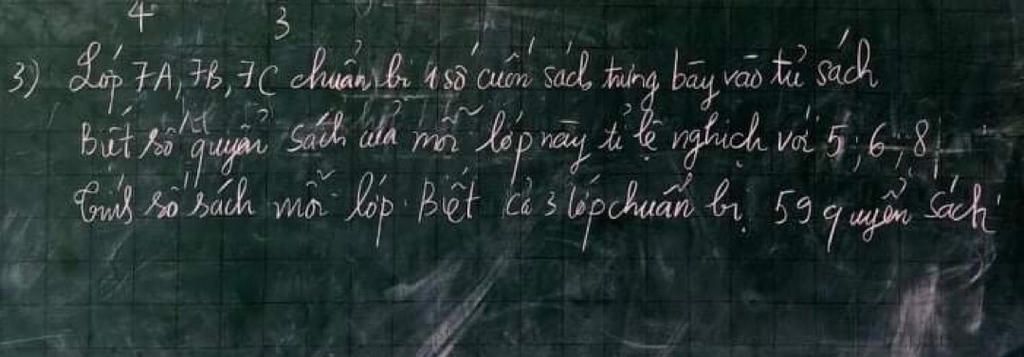 4 3
3) Lớp 7A, 7B, 7C chuẩn bị 1 số cuốn sách trưng bày vào tủ sách
Biết số quyển sách của mỗi lớp này tỉ lệ nghịch với 5; 6; 8
Tính số sách mỗi lớp. Biết cả 3 lớp chuẩn bị 59 quyển sách